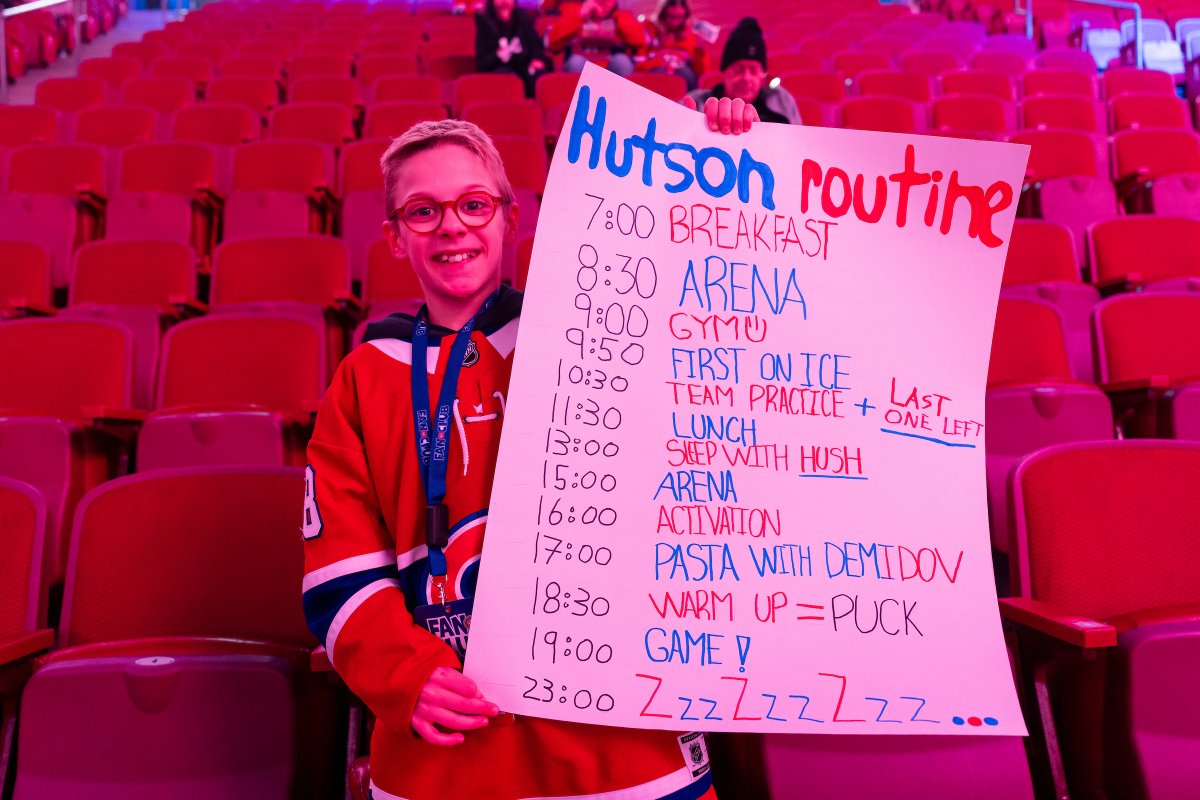 Hutson routine
7:00 BREAKFAST
8:30 ARENA
9:00 GYM
9:50 FIRST ON ICE
10:30 TEAM PRACTICE + LAST ONE LEFT
11:30 LUNCH
13:00 SLEEP WITH HUSH
15:00 ARENA
16:00 ACTIVATION
17:00 PASTA WITH DEMIDOV
18:30 WARM UP = PUCK
19:00 GAME!
23:00 ZzzZzzZzz...
FAN CLUB
FAN CLUB
FAN
8
4